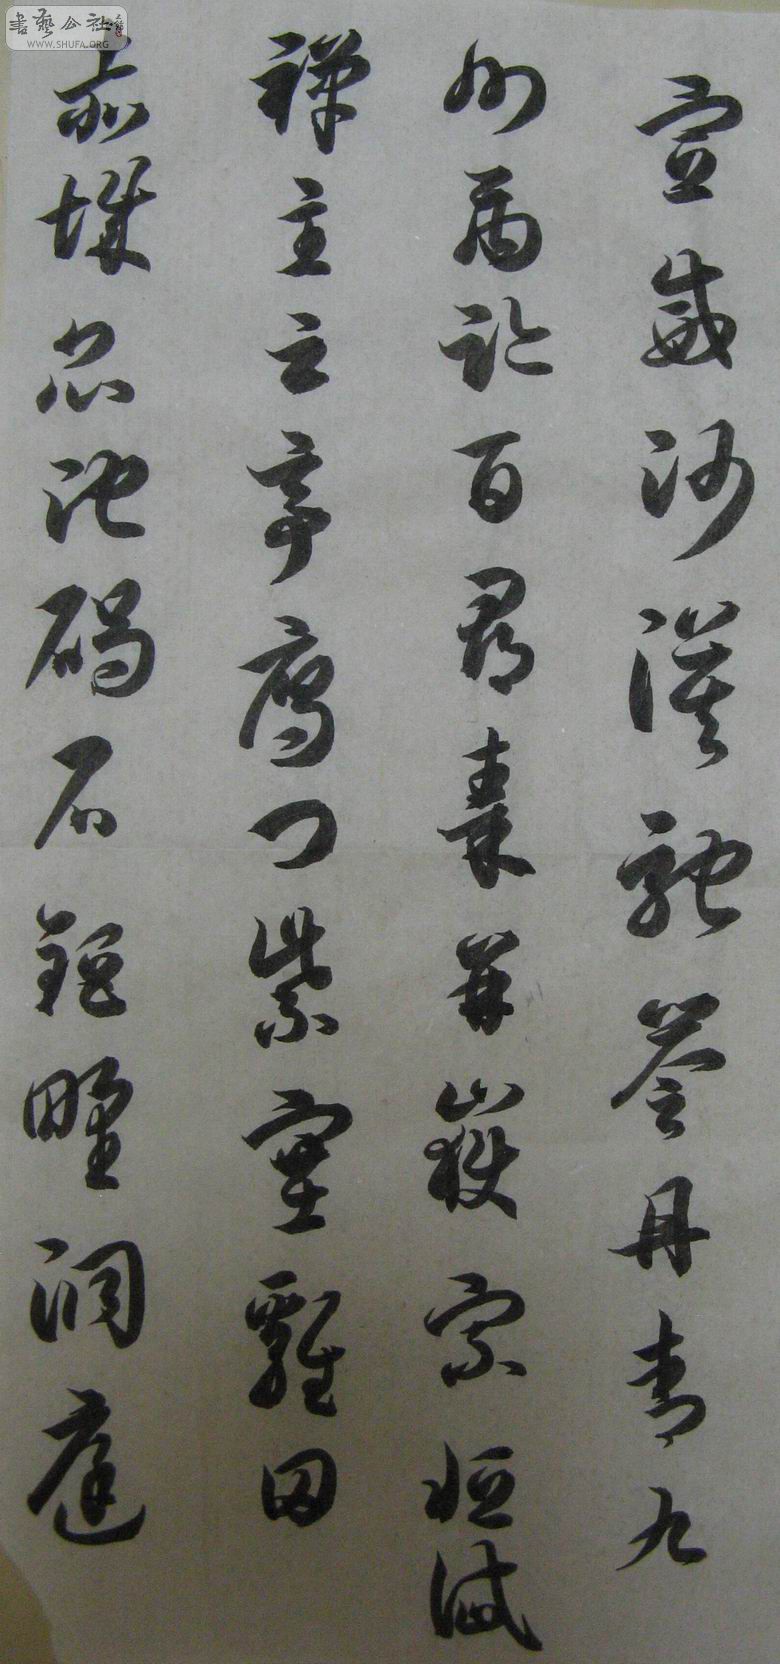 書藝公社
WWW.SHUFA.ORG
宣威沙漠馳譽丹青九
州禹跡百郡秦并嶽宗恒岱
禪主云亭雁門紫塞雞田
赤城昆池碣石鉅野洞庭